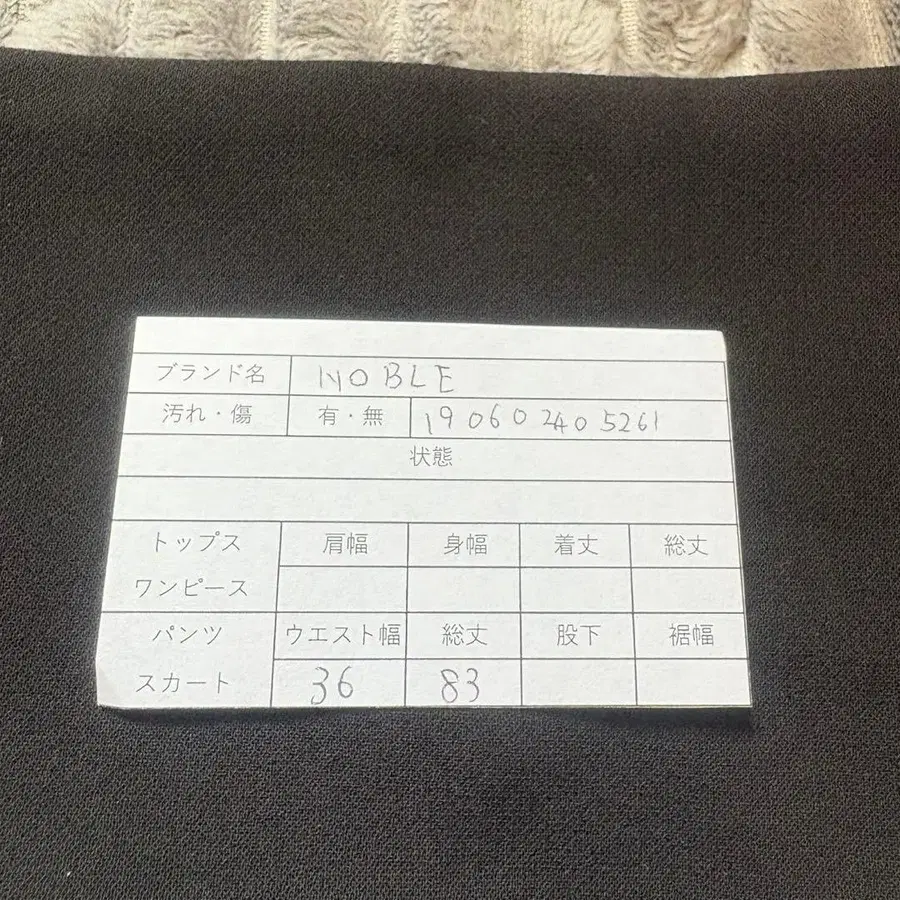 ブランド名 NOBLE
汚れ・傷 有・無 190602405261
状態
トップス 肩幅 身幅 着丈 総丈
ワンピース
パンツ ウエスト幅 総丈 股下 裾幅
スカート 36 83